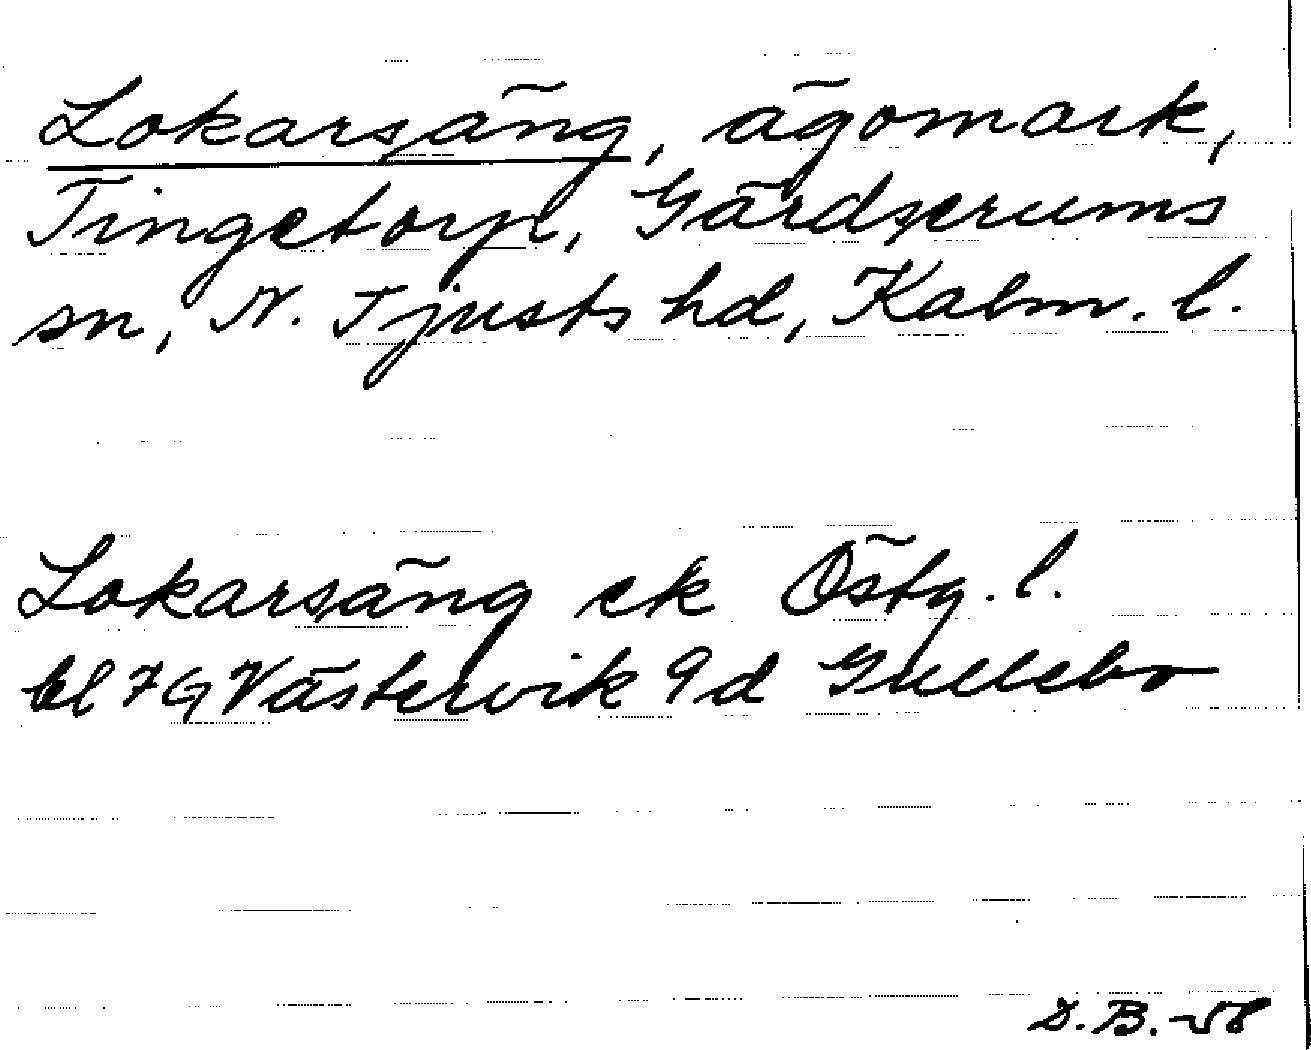 Lokarsäng, ägomark,
Tingetorp, Gärdserums
sn, N. Tjusts hd, Kalm. l.
Lokarsäng ek Östg. l.
bl 7G Västervik 9d Gullebo
D.B. -58